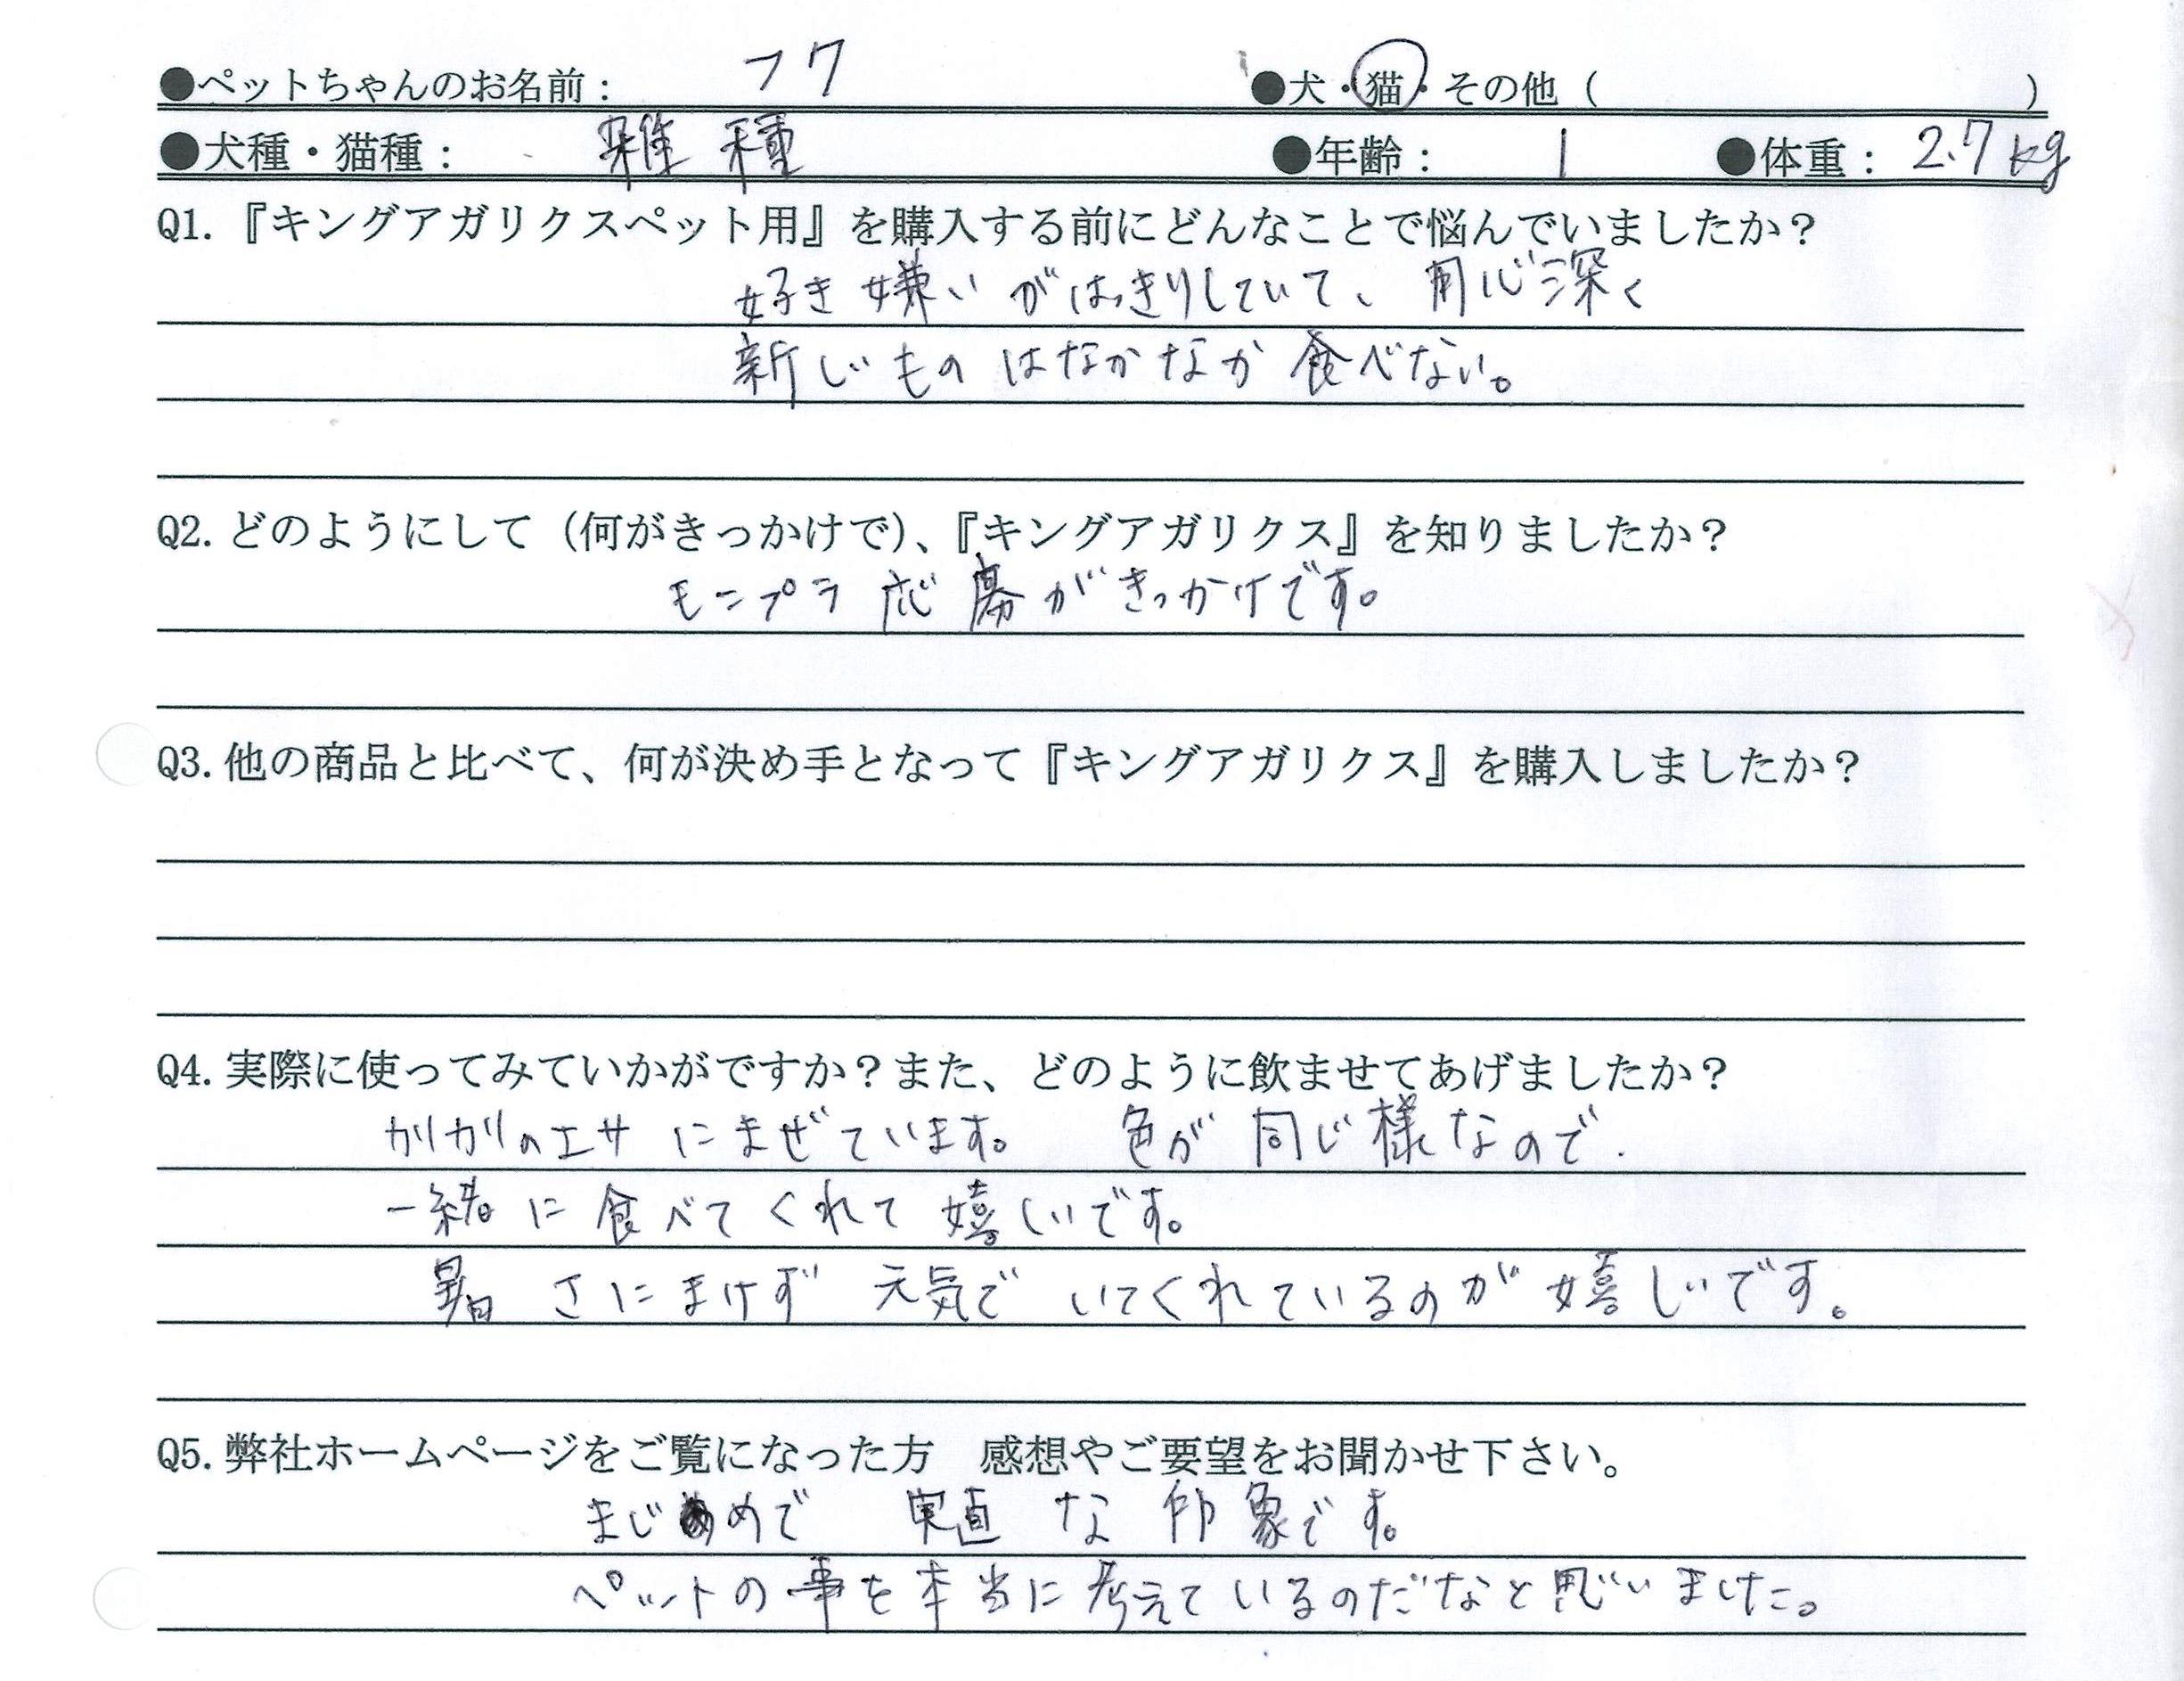 ●ペットちゃんのお名前： フク ●犬・猫・その他（ ）
●犬種・猫種： 雑種 ●年齢： 1 ●体重： 2.7kg
Q1.『キングアガリクスペット用』を購入する前にどんなことで悩んでいましたか？
好き嫌いがはっきりしていて、用心深く
新しいものはなかなか食べない。
Q2.どのようにして（何がきっかけで）、『キングアガリクス』を知りましたか？
モニプラ応募がきっかけです。
Q3.他の商品と比べて、何が決め手となって『キングアガリクス』を購入しましたか？
Q4.実際に使ってみていかがですか？また、どのように飲ませてあげましたか？
カリカリのエサにまぜています。 色が同じ様なので、
一緒に食べてくれて嬉しいです。
暑さにまけず元気でいてくれているのが嬉しいです。
Q5.弊社ホームページをご覧になった方　感想やご要望をお聞かせ下さい。
まじめで 実直な印象です。
ペットの事を本当に考えているのだなと思いました。